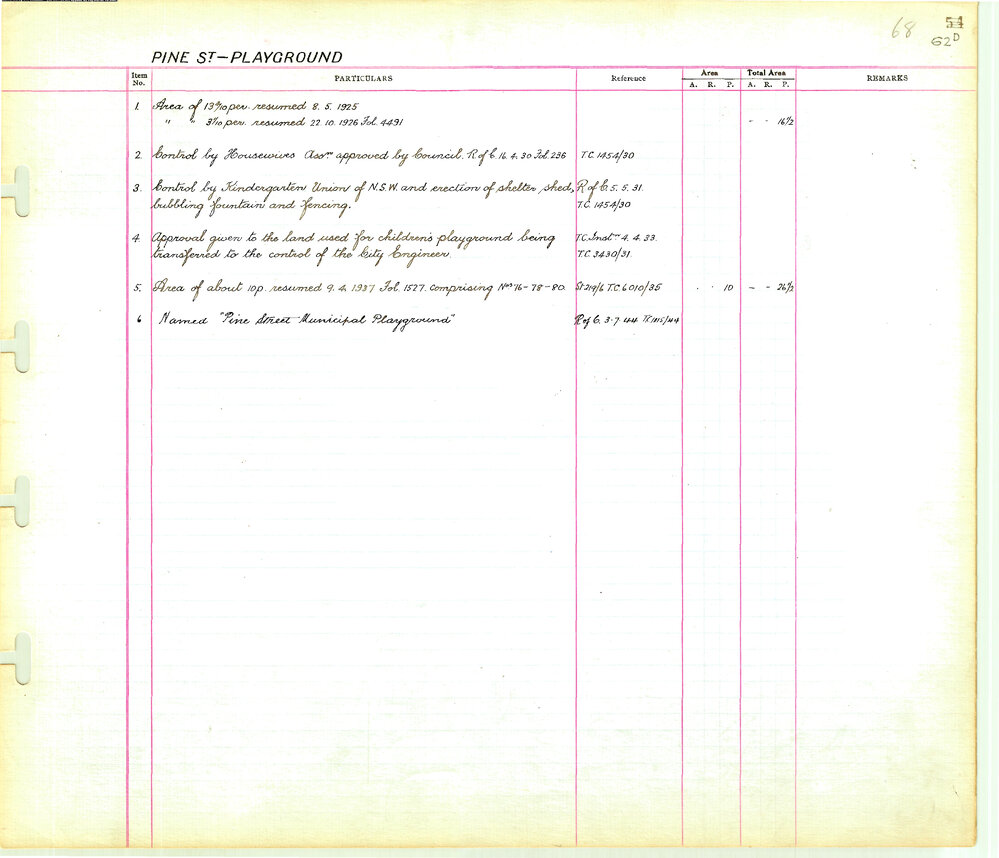 68 54
62D
PINE ST – PLAYGROUND
Item No. PARTICULARS Reference Area Total Area REMARKS
A. R. P. A. R. P.
1. Area of per. resumed 8. 5. 1925
" " per. resumed 22. 10. 1926 Fol. 4491 - - 16½
2. Control by Housewives Assn approved by Council. R of C. 16. 4. 30 Fol. 236 T.C. 1454/30
3. Control by Kindergarten Union of N.S.W. and erection of shelter shed, R of C. 5. 5. 31.
bubbling fountain and fencing. T.C. 1454/30
4. Approval given to the land used for children's playground being T.C. Instn 4. 4. 33.
transferred to the control of the City Engineer. T.C. 3430/31.
5. Area of about 10p. resumed 9. 4. 1937 Fol. 1527. comprising Nos 76 - 78 - 80. T.C. 6010/35 . . 10 - - 26½
6 Named "Pine Street Municipal Playground" R of C. 3. 7. 44